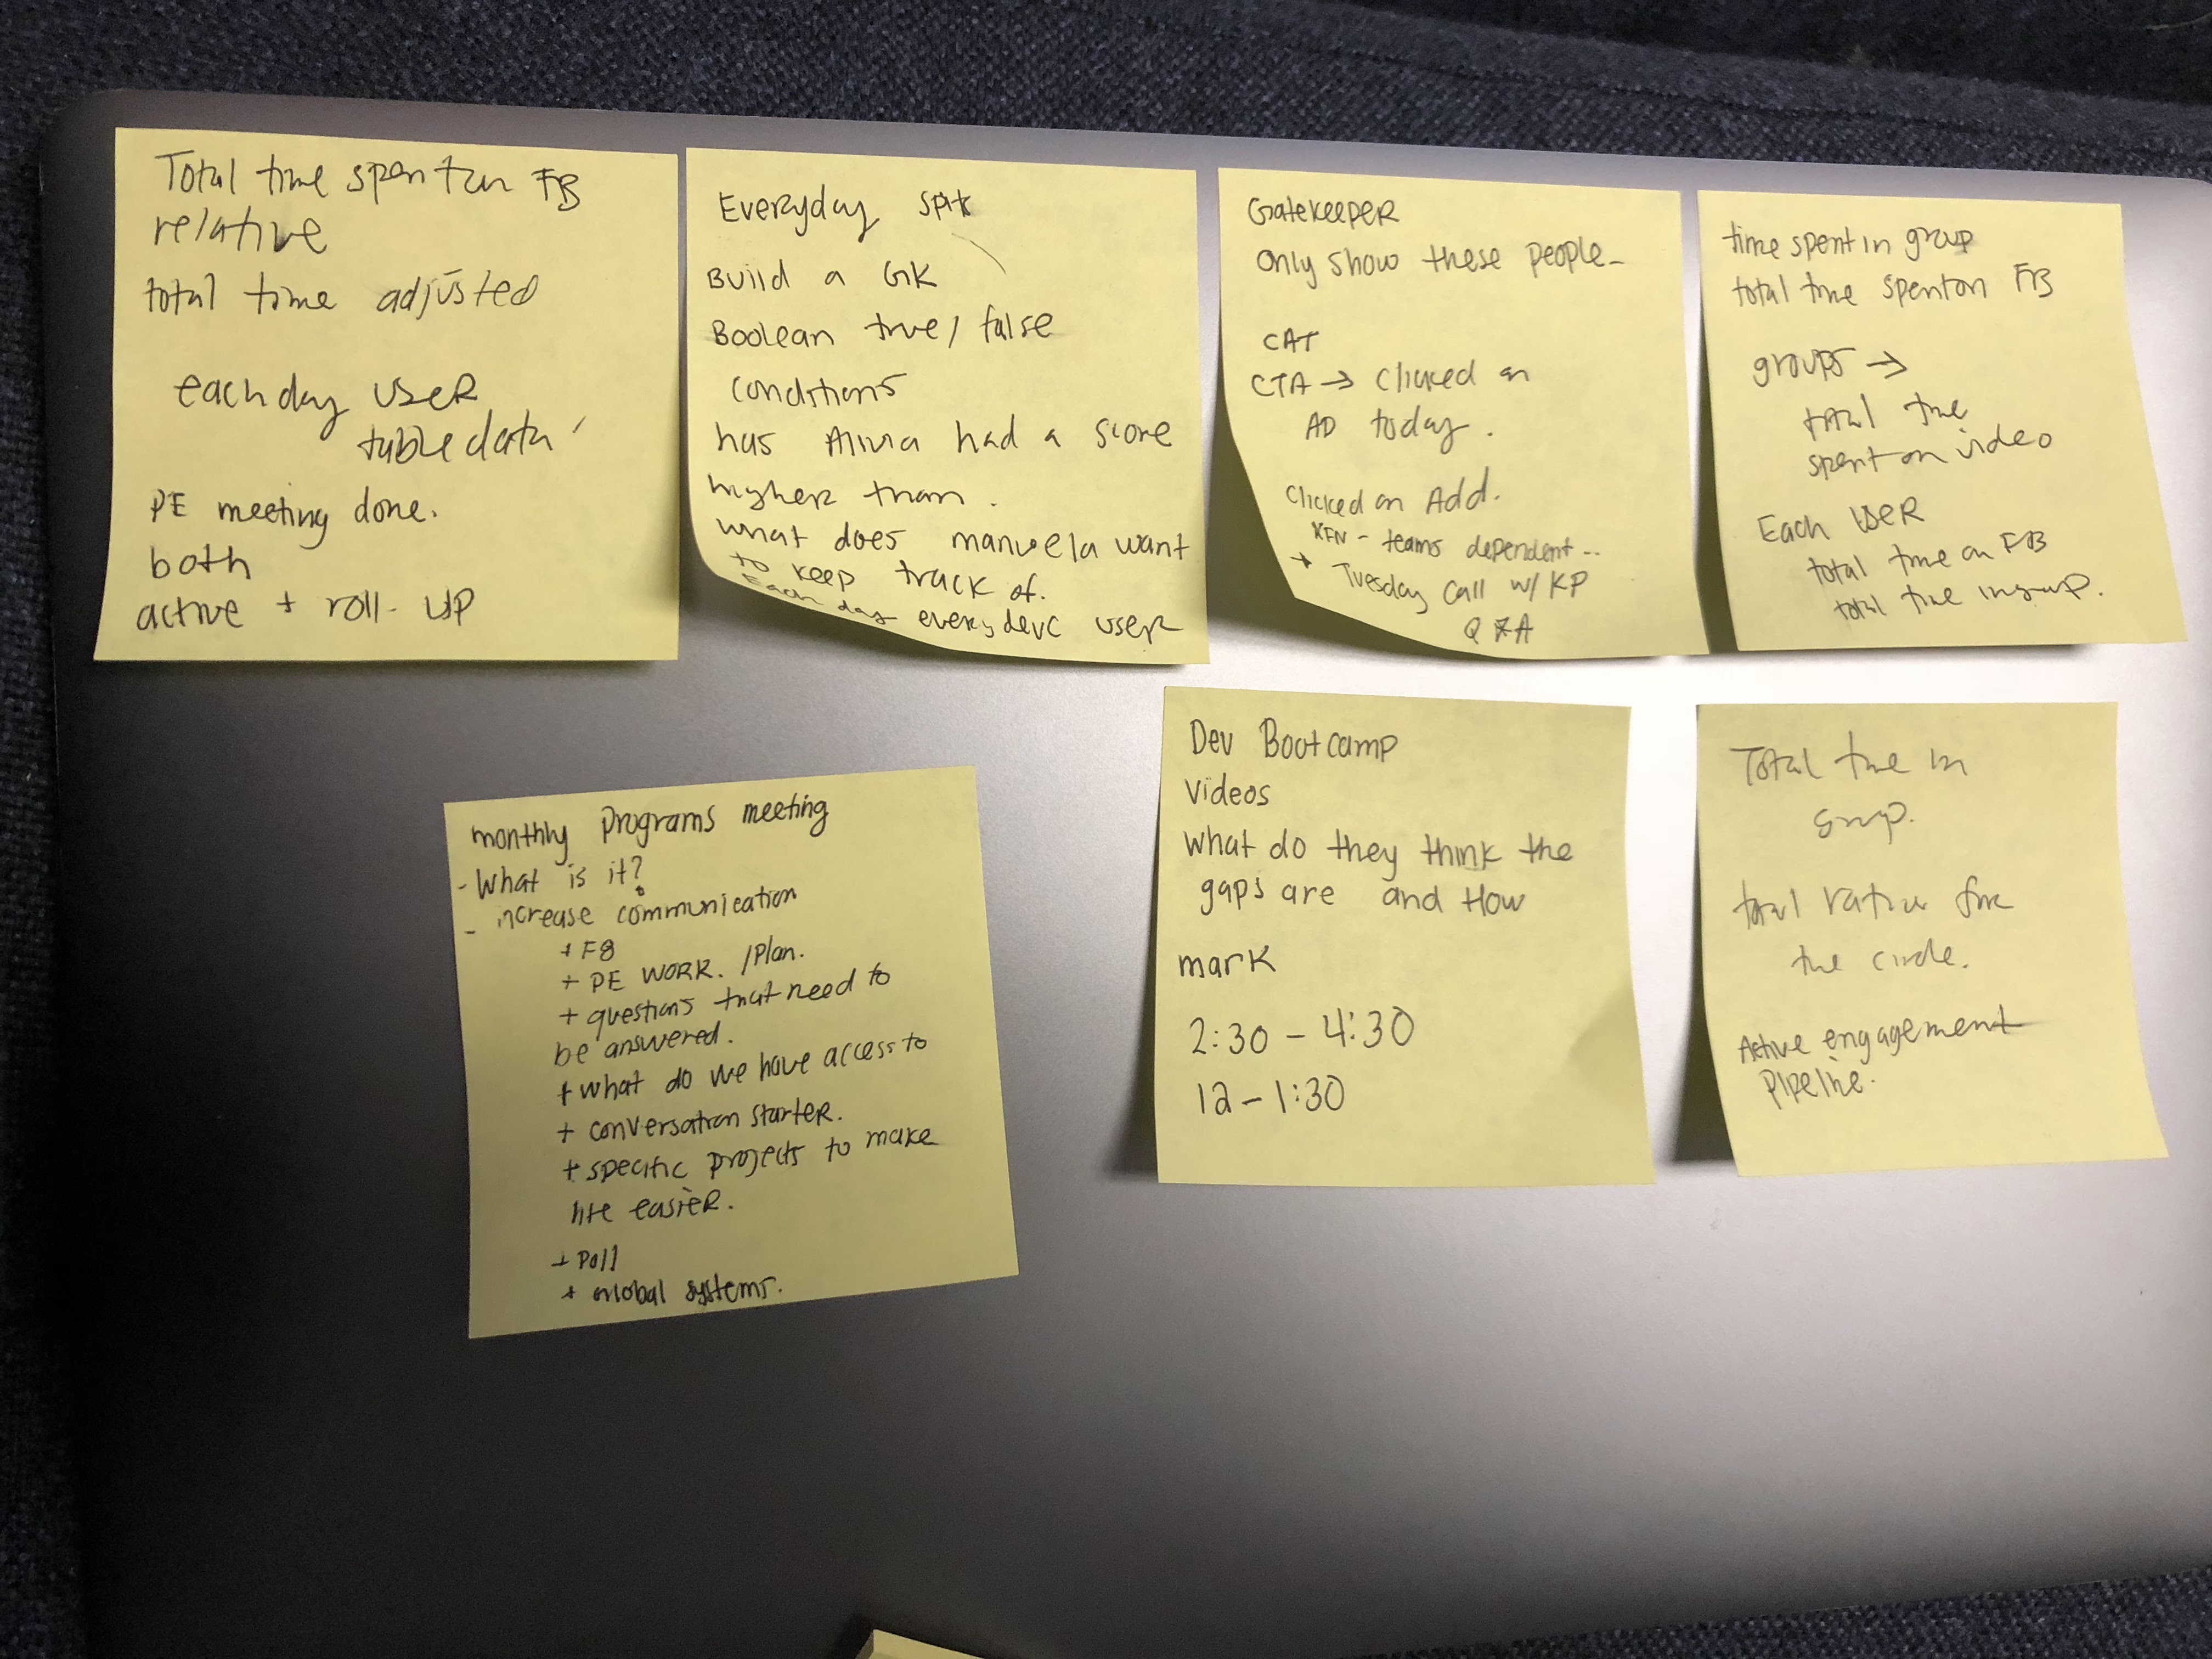 Total time spent on FB
relative
total time adjusted
each day user
table data
PE meeting done.
both
active + roll-up
Everyday
Build a GK
Boolean true/false
conditions
has Alivia had a score
higher than.
what does manuela want
to keep track of.
Each day every devc user
GateKeeper
only show these people-
CAT
CTA → Clicked on
AD today.
Clicked on Add.
XFN - teams dependent..
+ Tuesday Call w/ KP
Q & A
time spent in group
total time spent on FB
groups →
total time
spent on video
Each user
total time on FB
total time in group.
monthly programs meeting
- What is it?
- increase communication
+ F8
+ PE WORK. /Plan.
+ questions that need to
be answered.
+ what do we have access to
+ conversation starter.
+ specific projects to make
life easier.
+ Poll
+ Global systems.
Dev Bootcamp
Videos
what do they think the
gaps are and How
mark
2:30 - 4:30
12 - 1:30
Total time in
group.
total for
the circle.
Active engagement
pipeline.